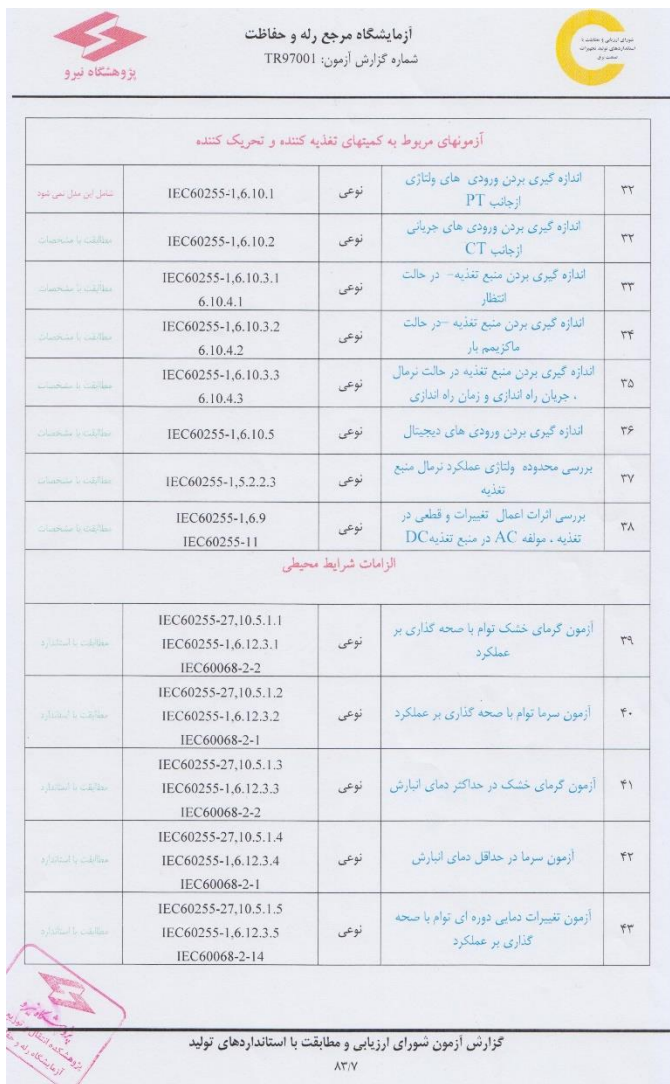 آزمایشگاه مرجع رله و حفاظت
شماره گزارش آزمون: TR97001
پژوهشگاه نیرو
شورای ارزیابی و مطابقت با
استانداردهای تولید تجهیزات
صنعت برق
آزمونهای مربوط به کمیتهای تغذیه کننده و تحریک کننده
۳۲ اندازه گیری بردن ورودی های ولتاژی ازجانب PT نوعی IEC60255-1,6.10.1 شامل این مدل نمی شود
۳۲ اندازه گیری بردن ورودی های جریانی ازجانب CT نوعی IEC60255-1,6.10.2 مطابقت با مشخصات
۳۳ اندازه گیری بردن منبع تغذیه– در حالت انتظار نوعی IEC60255-1,6.10.3.1 6.10.4.1 مطابقت با مشخصات
۳۴ اندازه گیری بردن منبع تغذیه –در حالت ماکزیمم بار نوعی IEC60255-1,6.10.3.2 6.10.4.2 مطابقت با مشخصات
۳۵ اندازه گیری بردن منبع تغذیه در حالت نرمال ، جریان راه اندازی و زمان راه اندازی نوعی IEC60255-1,6.10.3.3 6.10.4.3 مطابقت با مشخصات
۳۶ اندازه گیری بردن ورودی های دیجیتال نوعی IEC60255-1,6.10.5 مطابقت با مشخصات
۳۷ بررسی محدوده ولتاژی عملکرد نرمال منبع تغذیه نوعی IEC60255-1,5.2.2.3 مطابقت با مشخصات
۳۸ بررسی اثرات اعمال تغییرات و قطعی در تغذیه ، مولفه AC در منبع تغذیهDC نوعی IEC60255-1,6.9 IEC60255-11 مطابقت با مشخصات
الزامات شرایط محیطی
۳۹ آزمون گرمای خشک توام با صحه گذاری بر عملکرد نوعی IEC60255-27,10.5.1.1 IEC60255-1,6.12.3.1 IEC60068-2-2 مطابقت با استاندارد
۴۰ آزمون سرما توام با صحه گذاری بر عملکرد نوعی IEC60255-27,10.5.1.2 IEC60255-1,6.12.3.2 IEC60068-2-1 مطابقت با استاندارد
۴۱ آزمون گرمای خشک در حداکثر دمای انبارش نوعی IEC60255-27,10.5.1.3 IEC60255-1,6.12.3.3 IEC60068-2-2 مطابقت با استاندارد
۴۲ آزمون سرما در حداقل دمای انبارش نوعی IEC60255-27,10.5.1.4 IEC60255-1,6.12.3.4 IEC60068-2-1 مطابقت با استاندارد
۴۳ آزمون تغییرات دمایی دوره ای توام با صحه گذاری بر عملکرد نوعی IEC60255-27,10.5.1.5 IEC60255-1,6.12.3.5 IEC60068-2-14 مطابقت با استاندارد
پژوهشگاه نیرو
پژوهشکده انتقال
آزمایشگاه رله و
گزارش آزمون شورای ارزیابی و مطابقت با استانداردهای تولید
۸۳/۷